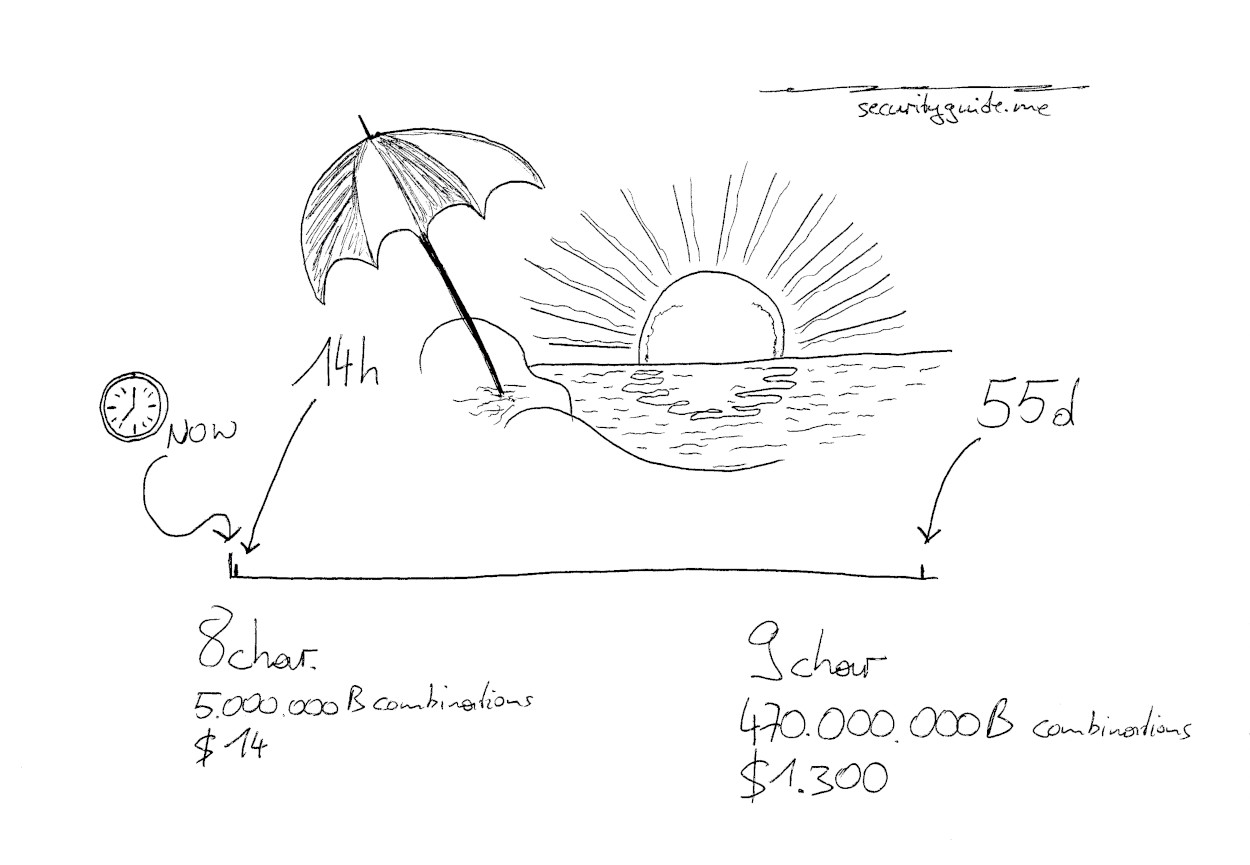 securityguide.me
14h
NOW
55d
8 char.
5.000.000 B combinations
$ 14
9 char
470.000.000 B combinations
$1.300